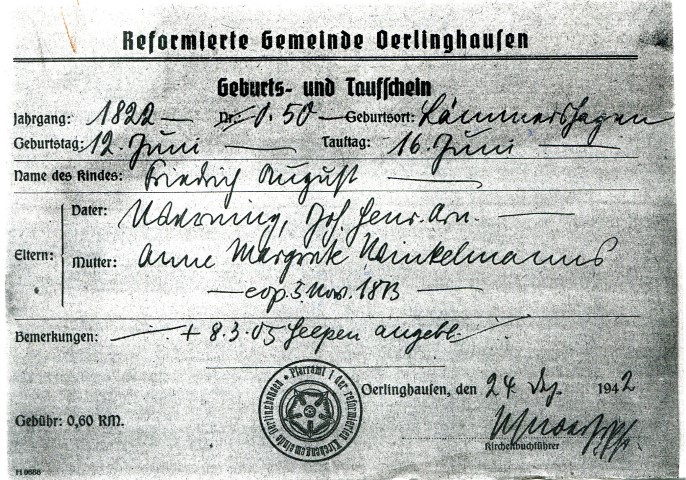 Reformierte Gemeinde Oerlinghausen
Geburts- und Taufschein
Jahrgang: 1822 — Nr. S. 50 — Geburtsort: Lämmershagen
Geburtstag: 12. Juni — Tauftag: 16. Juni —
Name des Kindes: Friedrich August —
Vater: Joh. Henr. Arn. —
Eltern:
Mutter: Anne Margrete Winkelmanns
— cop. 5. Nov. 1813 —
Bemerkungen: — + 8.3.05 Heepen angebl. —
Pfarramt I der reformierten Kirchengemeinde Oerlinghausen
Oerlinghausen, den 24. Dez. 1942
Gebühr: 0,60 RM.
Kirchenbuchführer